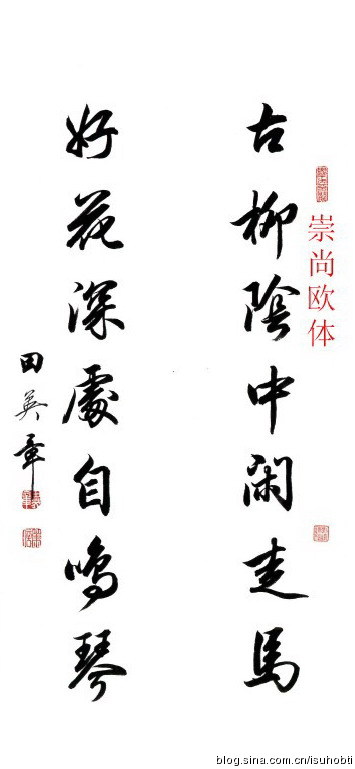 古柳陰中閑走馬
好花深處自鳴琴
田英章
崇尚欧体
blog.sina.com.cn/isuhobti